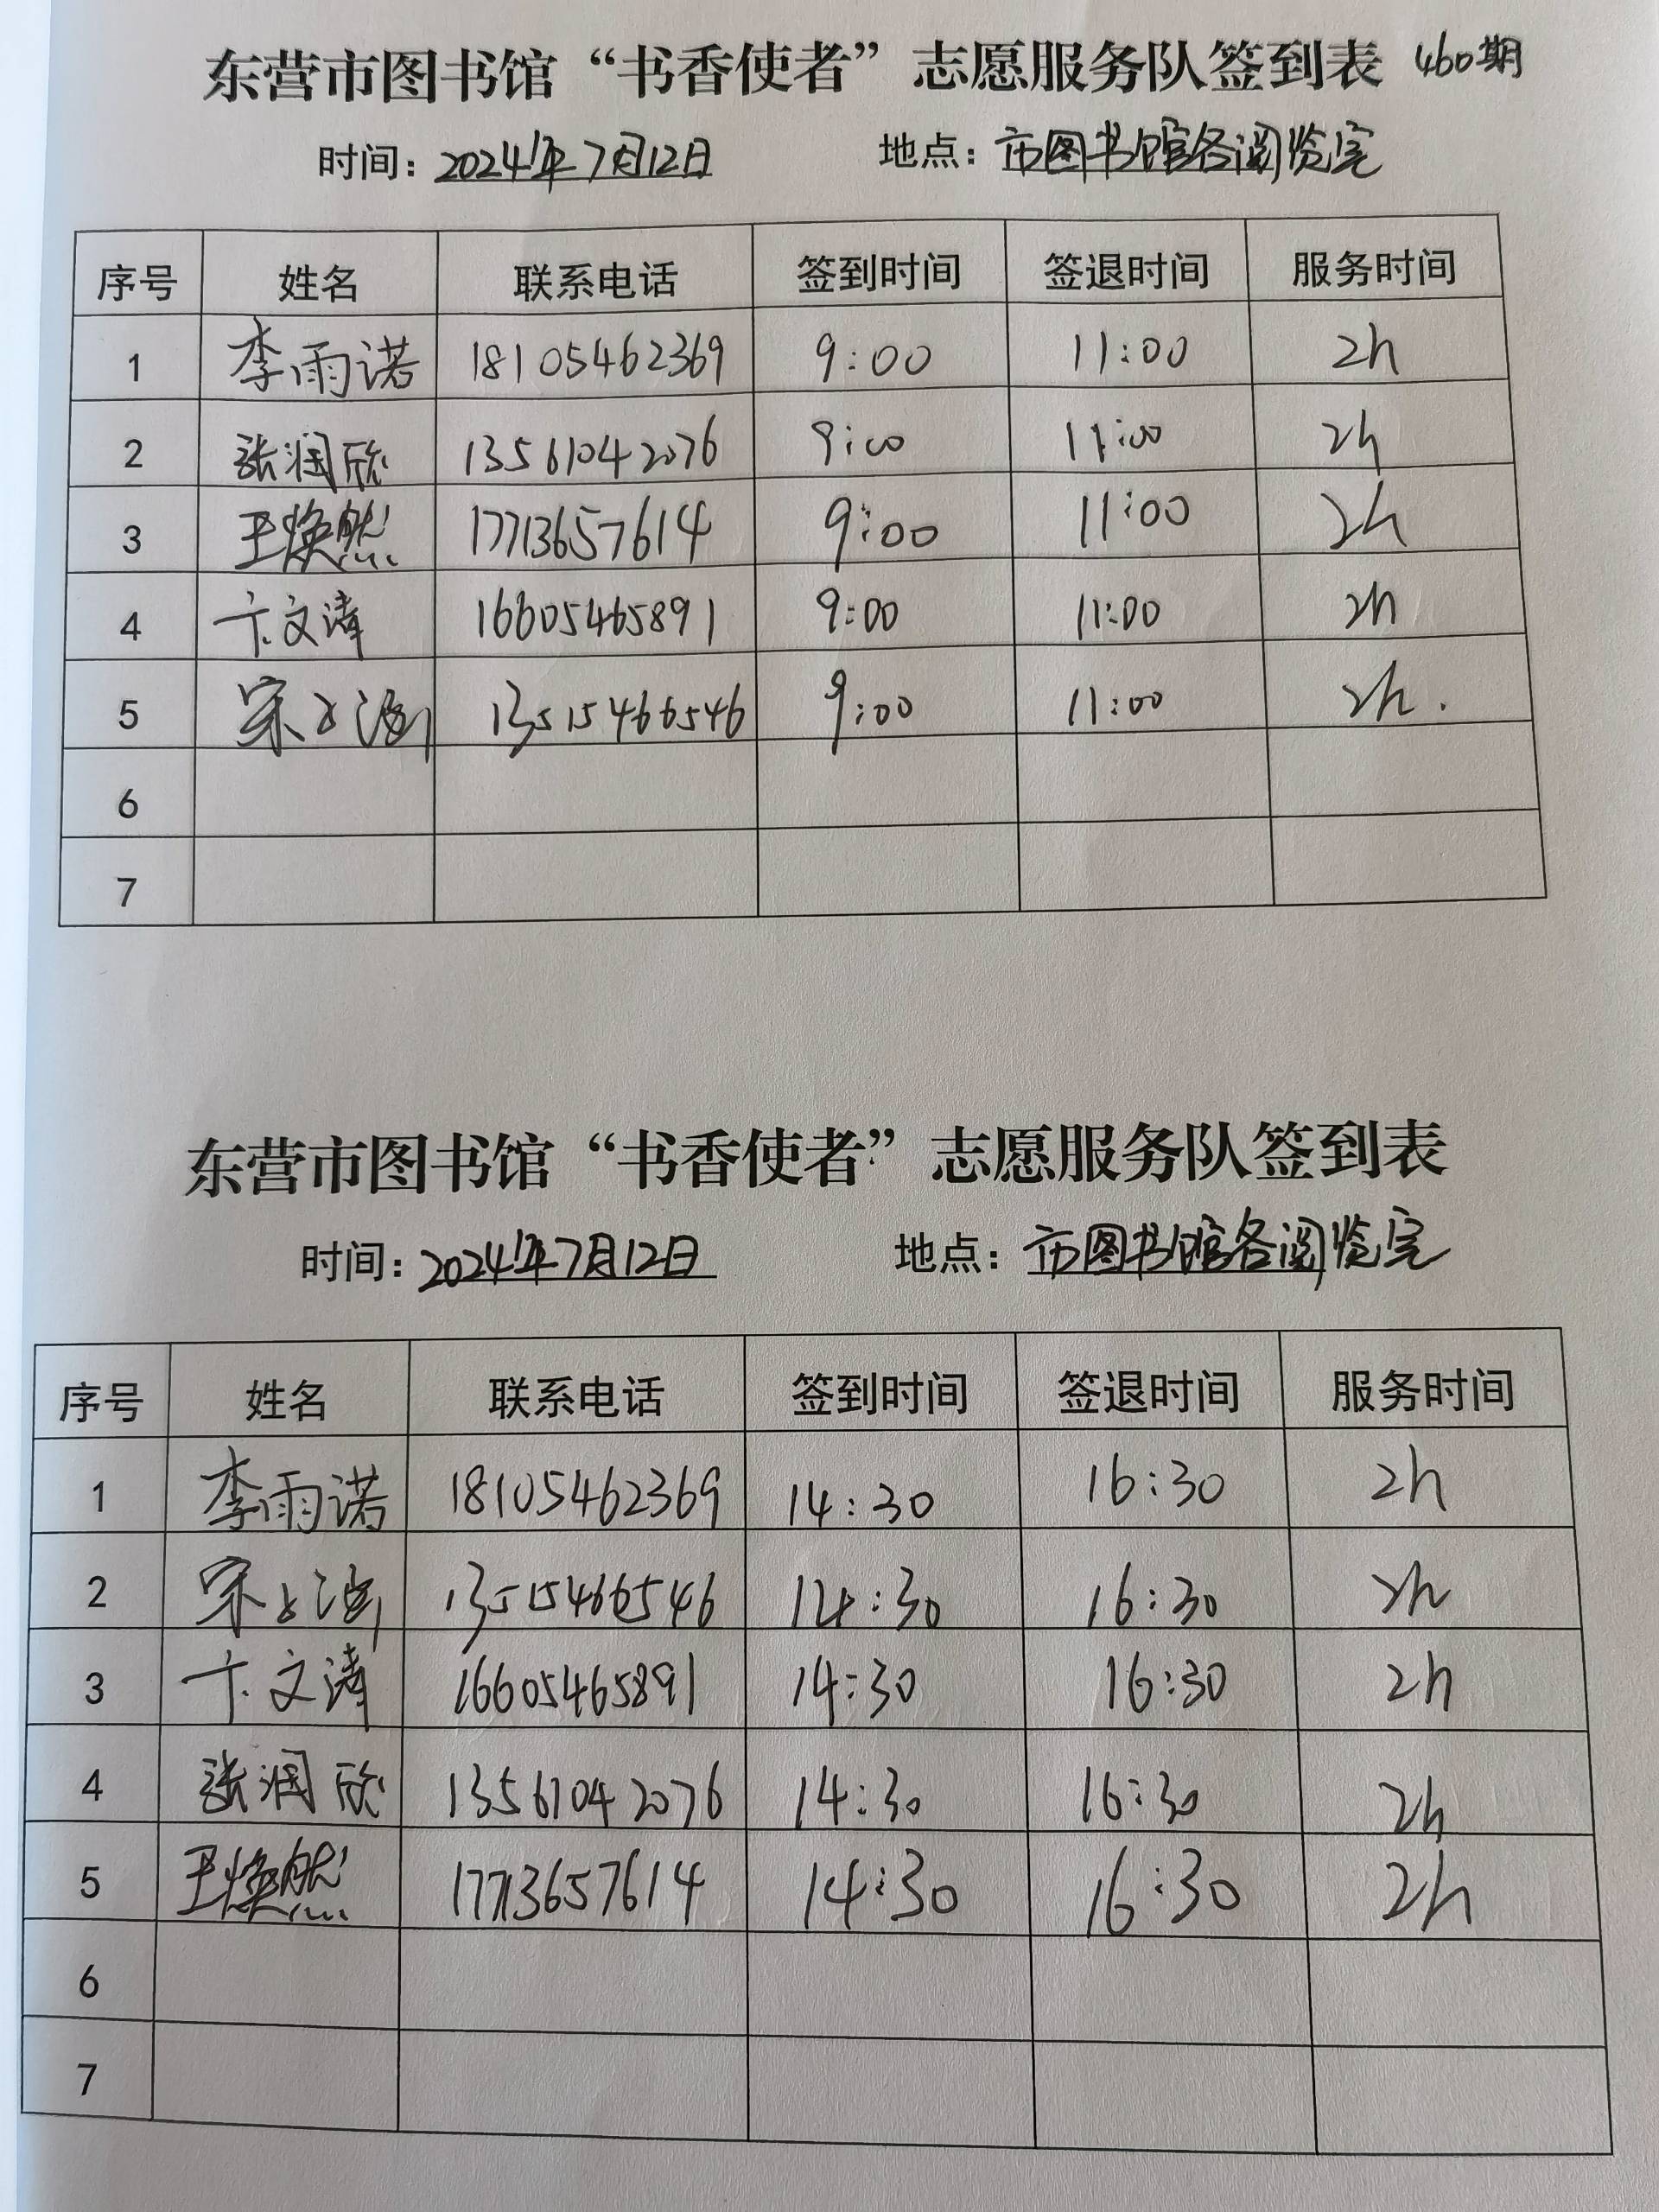 东营市图书馆“书香使者”志愿服务队签到表 460期
时间：2024年7月12日 地点：市图书馆各阅览室
序号 姓名 联系电话 签到时间 签退时间 服务时间
1 李雨诺 18105462369 9:00 11:00 2h
2 张润欣 13561042076 9:00 11:00 2h
3 王焕然 17713657614 9:00 11:00 2h
4 卞文涛 16605465891 9:00 11:00 2h
5 宋 13515466546 9:00 11:00 2h.
6
7
东营市图书馆“书香使者”志愿服务队签到表
时间：2024年7月12日 地点：市图书馆各阅览室
序号 姓名 联系电话 签到时间 签退时间 服务时间
1 李雨诺 18105462369 14:30 16:30 2h
2 宋 13515466546 14:30 16:30 2h
3 卞文涛 16605465891 14:30 16:30 2h
4 张润欣 13561042076 14:30 16:30 2h
5 王焕然 17713657614 14:30 16:30 2h
6
7